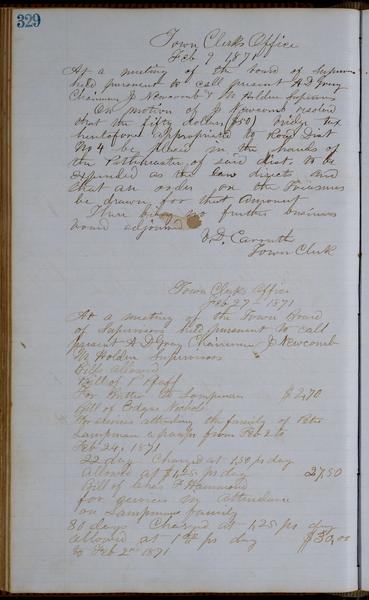 329
Town Clerks Office
Feb 9 1871
At a meeting of the board of Supervis
held pursuant to call present A D Gray
Chairman J Newcomb & M Holden Supervisors
On motion of J Newcomb resolved
that the fifty dollars ($50) bridge tax
heretofore appropriated to Road Dist
No 4 be placed in the hands of
the Pathmaster of said dist. to be
expended as the law directs and
that an order on the Treasurer
be drawn for that amount
There being no further business
board adjourned
Town Clerk
Town Clerks Office
Feb 27th 1871
At a meeting of the Town Board
of Supervisors held pursuant to call
present A D Gray Chairman J Newcomb
M Holden Supervisors
Bills allowed
Bill of P Pfaff
For Butter to Lampman $2,70
Bill of Edgar Nichols
For services attending the family of Peter
Lampman a pauper from Feb 2 to
Feb 24, 1871
22 days Charged at 1,50 pr day
Allowed at $1,25 pr day 27,50
Bill of Chas F Hammond
for services in attendance
on Lampmans family
30 days Charged at 1,25 pr day
allowed at 1.00 pr day $30,00
to Feb 2nd 1871